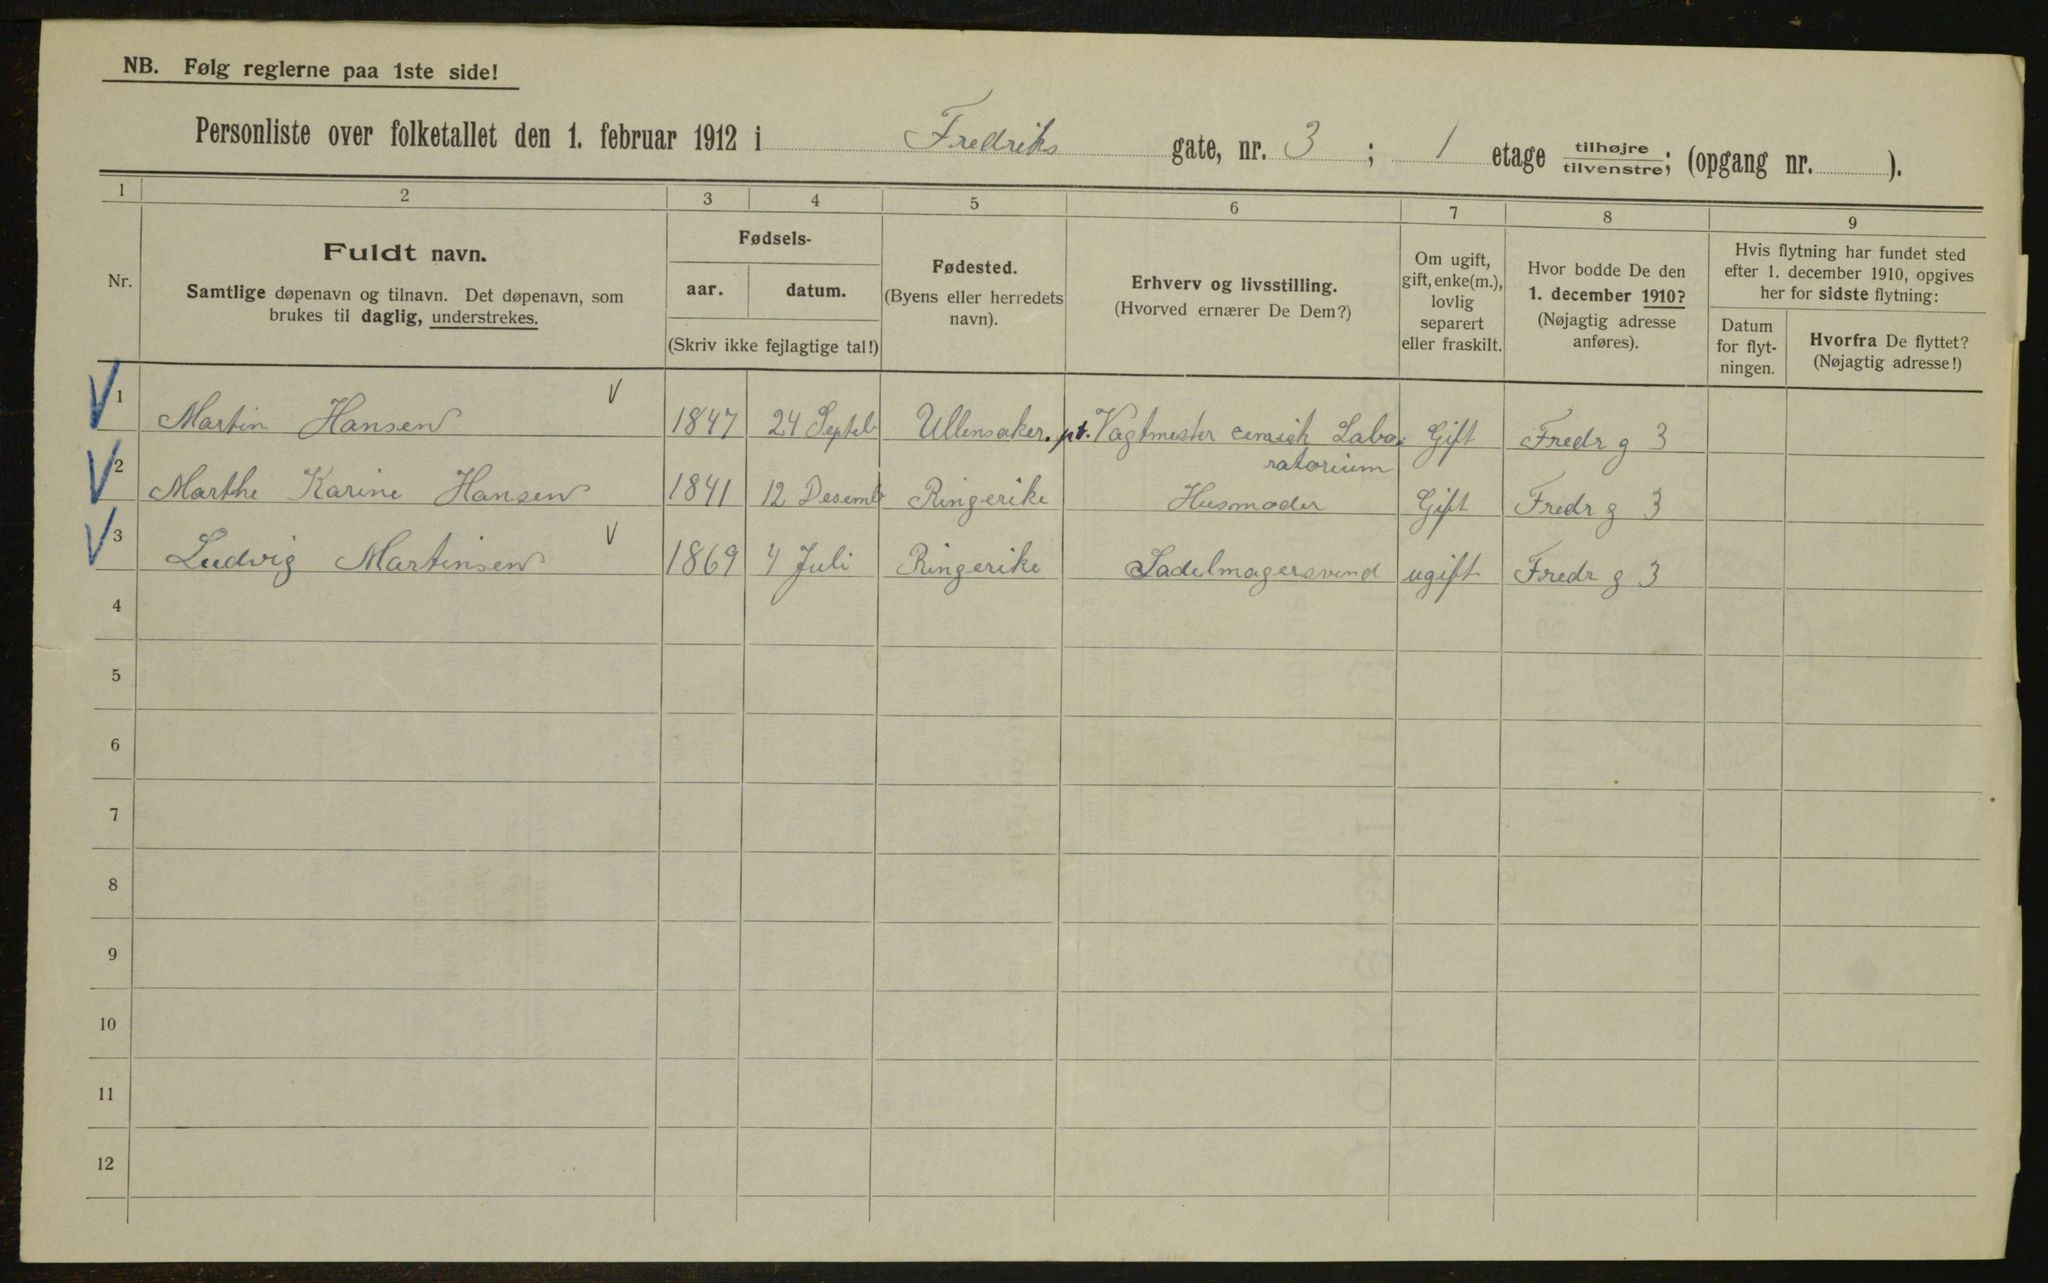 NB. Følg reglerne paa 1ste side!
Personliste over folketallet den 1. februar 1912 i Fredriks gate, nr. 3 ; 1 etage tilhøjre/tilvenstre; (opgang nr. ).
1 2 3 4 5 6 7 8 9
Nr.
Fuldt navn.
Samtlige døpenavn og tilnavn. Det døpenavn, som
brukes til daglig, understrekes.
Fødsels-
aar. datum.
(Skriv ikke fejlagtige tal!)
Fødested.
(Byens eller herredets
navn).
Erhverv og livsstilling.
(Hvorved ernærer De Dem?)
Om ugift,
gift, enke(m.),
lovlig
separert
eller fraskilt.
Hvor bodde De den
1. december 1910?
(Nøjagtig adresse
anføres).
Hvis flytning har fundet sted
efter 1. december 1910, opgives
her for sidste flytning:
Datum
for flyt-
ningen.
Hvorfra De flyttet?
(Nøjagtig adresse!)
V 1 Martin Hansen V 1847 24 Septeb Ullensaker. pt. Vagtmester cemish Labo- Gift Fredr g 3
ratorium
V 2 Marthe Karine Hansen 1841 12 Desemb Ringerike Husmoder Gift Fredr g 3
V 3 Ludvig Martinsen V 1869 4 Juli Ringerike Sadelmagersvend ugift Fredr g 3
4
5
6
7
8
9
10
11
12